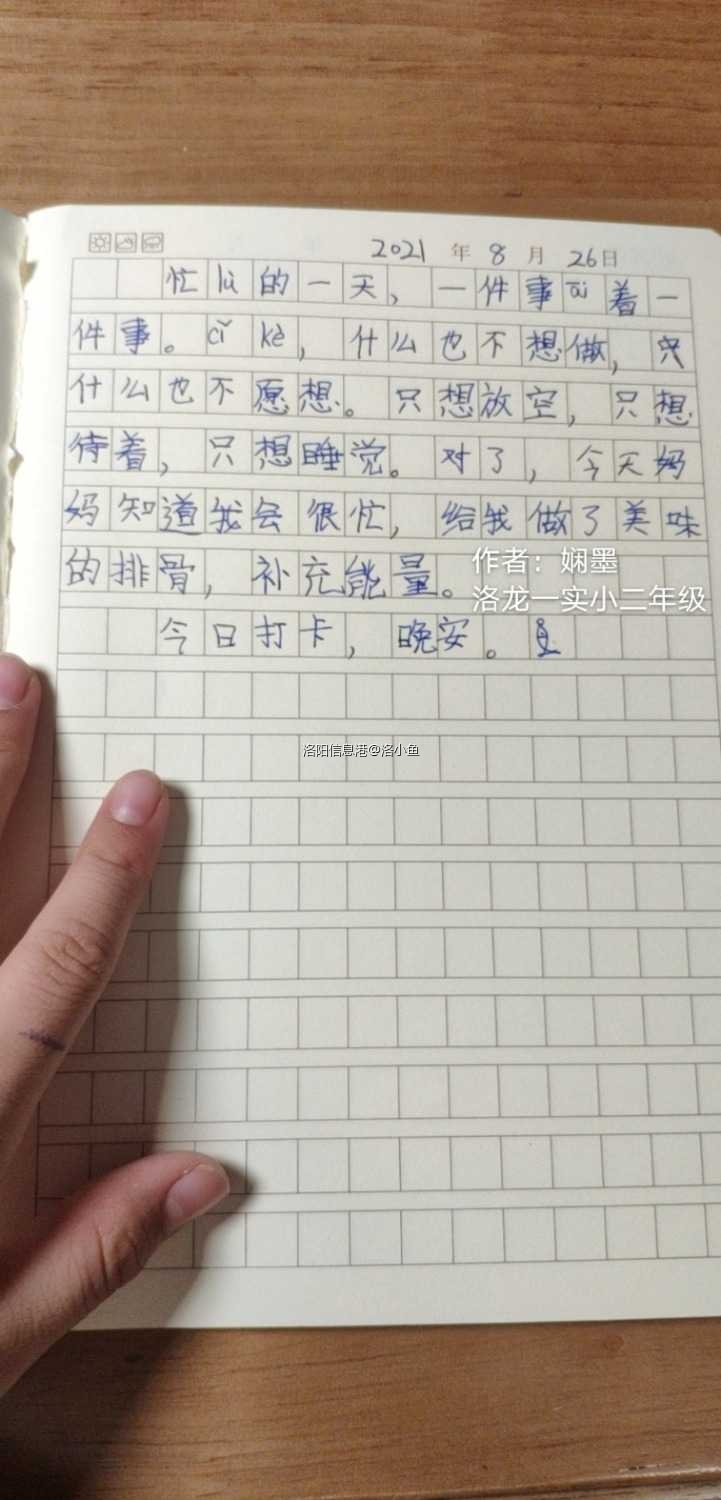 2021 年 8 月 26日
忙lù的一天，一件事āi着一
件事。cǐ kè，什么也不想做，
什么也不愿想。只想放空，只想
待着，只想睡觉。对了，今天妈
妈知道我会很忙，给我做了美味
的排骨，补充能量。
作者：娴墨
洛龙一实小二年级
今日打卡，晚安。
洛阳信息港@洛小鱼